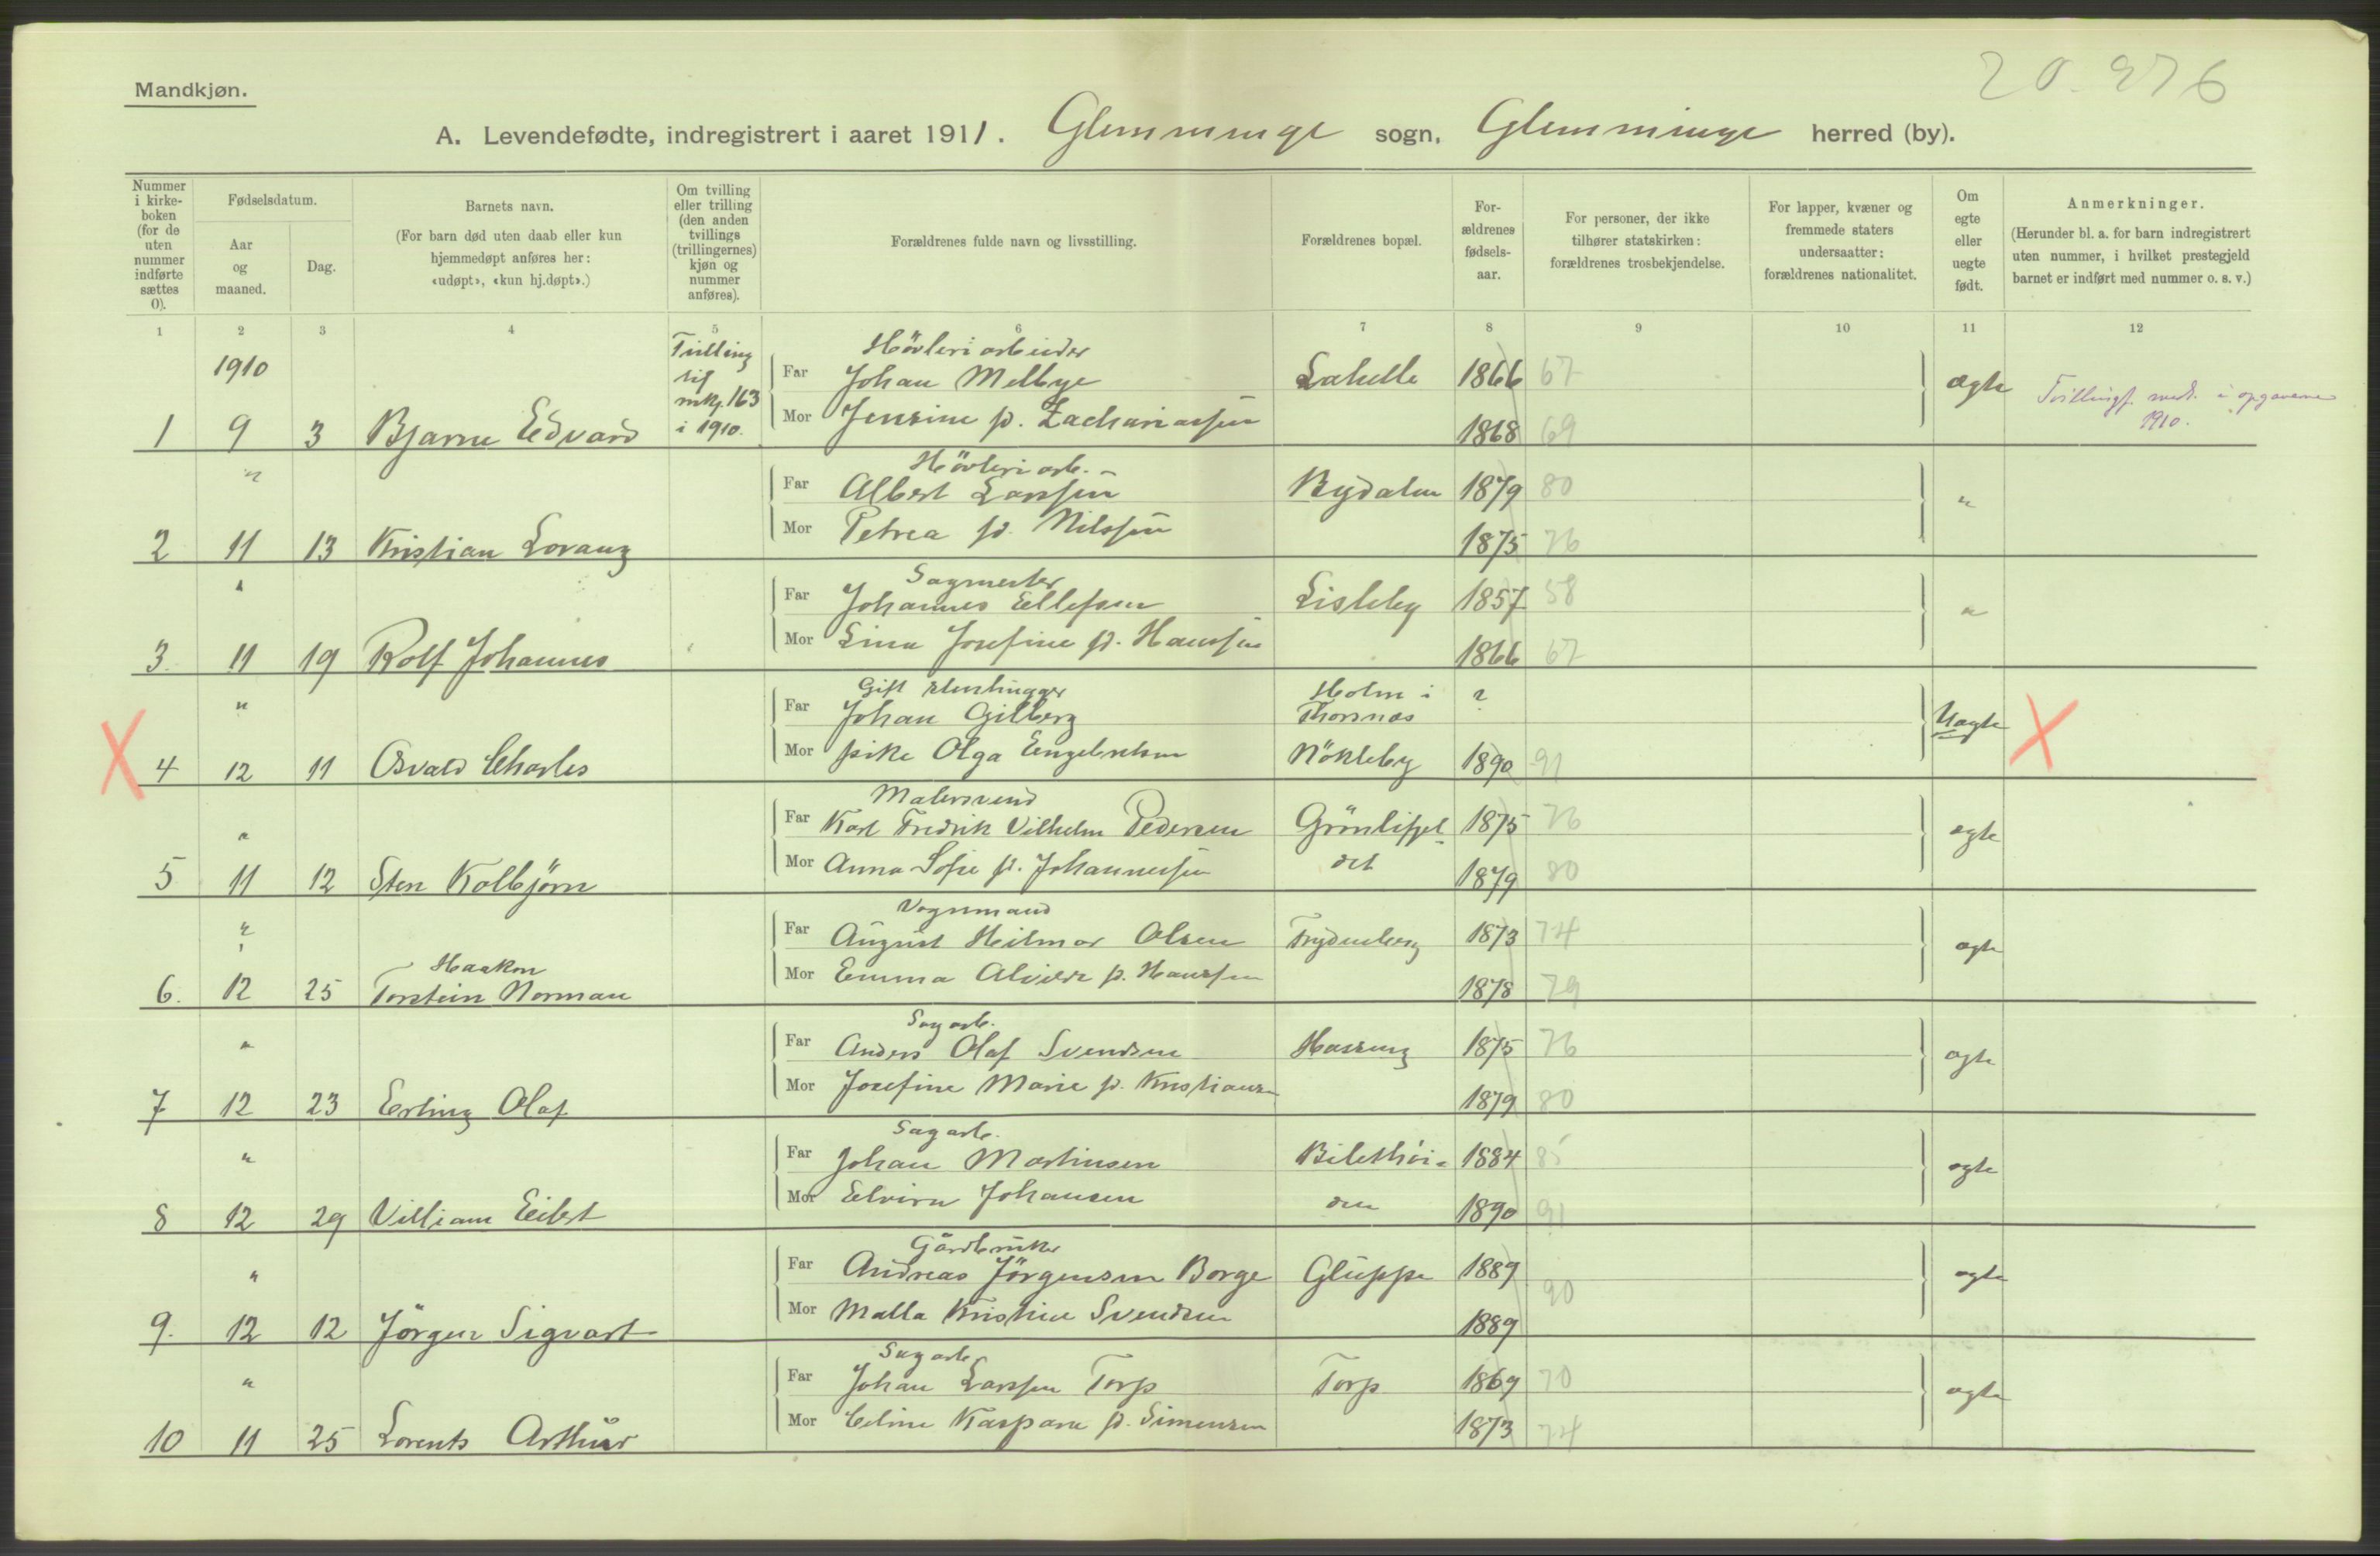 20.276
Mandkjøn.
A. Levendefødte, indregistrert i aaret 1911. Glemminge sogn, Glemminge herred (by).
Nummer i kirke-boken (for de uten nummer indførte sættes 0).
Fødselsdatum.
Aar og maaned.
Dag.
Barnets navn.
(For barn død uten daab eller kun hjemmedøpt anføres her: «udøpt», «kun hj.døpt».)
Om tvilling eller trilling (den anden tvillings (trillingernes) kjøn og nummer anføres).
Forældrenes fulde navn og livsstilling.
Forældrenes bopæl.
For-ældrenes fødsels-aar.
For personer, der ikke tilhører statskirken: forældrenes trosbekjendelse.
For lapper, kvæner og fremmede staters undersaatter: forældrenes nationalitet.
Om egte eller uegte født.
Anmerkninger.
(Herunder bl. a. for barn indregistrert uten nummer, i hvilket prestegjeld barnet er indført med nummer o. s. v.)
1 2 3 4 5 6 7 8 9 10 11 12
1910 Tvilling til mkj. 163 i 1910. Høvleriarbeider
Far Johan Melbye Lahelle 1866 67 ægte Tvillingf. medt. i opgaverne 1910.
1 9 3 Bjarne Edvard Mor Jensine f. Zachariassen 1868 69
" Høvleriarb.
Far Albert Larssen Bydalen 1879 80 "
2 11 13 Kristian Lorang Mor Petrea f. Nilssen 1875 76
" Sagmester
Far Johannes Ellefsen Lisleby 1857 58 "
3 11 19 Rolf Johannes Mor Lina Josefine f. Hanssen 1866 67
" Gift stenhugger Holm i Thorsnæs
Far Johan Gilberg ? Uægte X
X 4 12 11 Osvald Charles Mor pike Olga Engebretsen Nökleby 1890 91
" Malersvend
Far Karl Fredrik Vilhelm Pedersen Grönlifjel- 1875 76 ægte
5 11 12 Sten Kolbjörn Mor Anna Sofie f. Johannessen det 1879 80
" Vognmand
Far August Hilmar Olsen Frydenberg 1873 74 ægte
Haakon
6. 12 25 Torstein Norman Mor Emma Alvilde f. Hanssen 1878 79
" Sagarb.
Far Anders Olaf Svendsen Hassing 1875 76 ægte
7 12 23 Erling Olaf Mor Josefine Marie f. Kristiansen 1879 80
" Sagarb.
Far Johan Martinsen 1884 85 ægte
8 12 29 Villiam Eilert Mor Elvira Johansen den 1890 91
" Gårdbruker
Far Andreas Jörgensen Borge Gluppe 1889 90 ægte
9. 12 12 Jörgen Sigvart Mor Malla Kristine Svendsen 1889
" Sagarb.
Far Johan Larssen Torp Torp 1869 70 ægte
10 11 25 Lorents Arthur Mor Celine Kaspara f. Simensen 1873 74